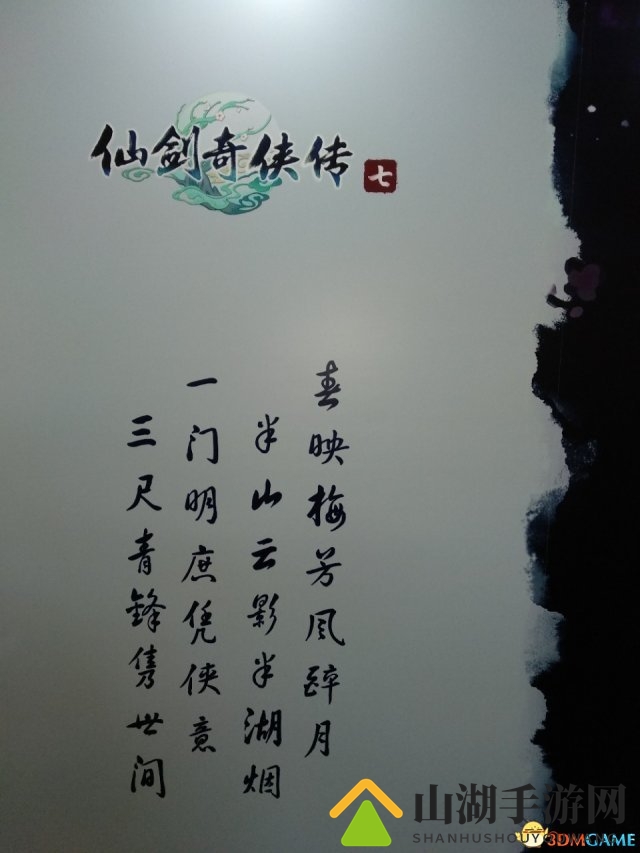 仙剑奇侠传 七
春映梅芳风醉月
半山云影半湖烟
一门明庶凭侠意
三尺青锋隽世间
山湖手游网
SHANHUSHOUYOUWANG
3DMGAME